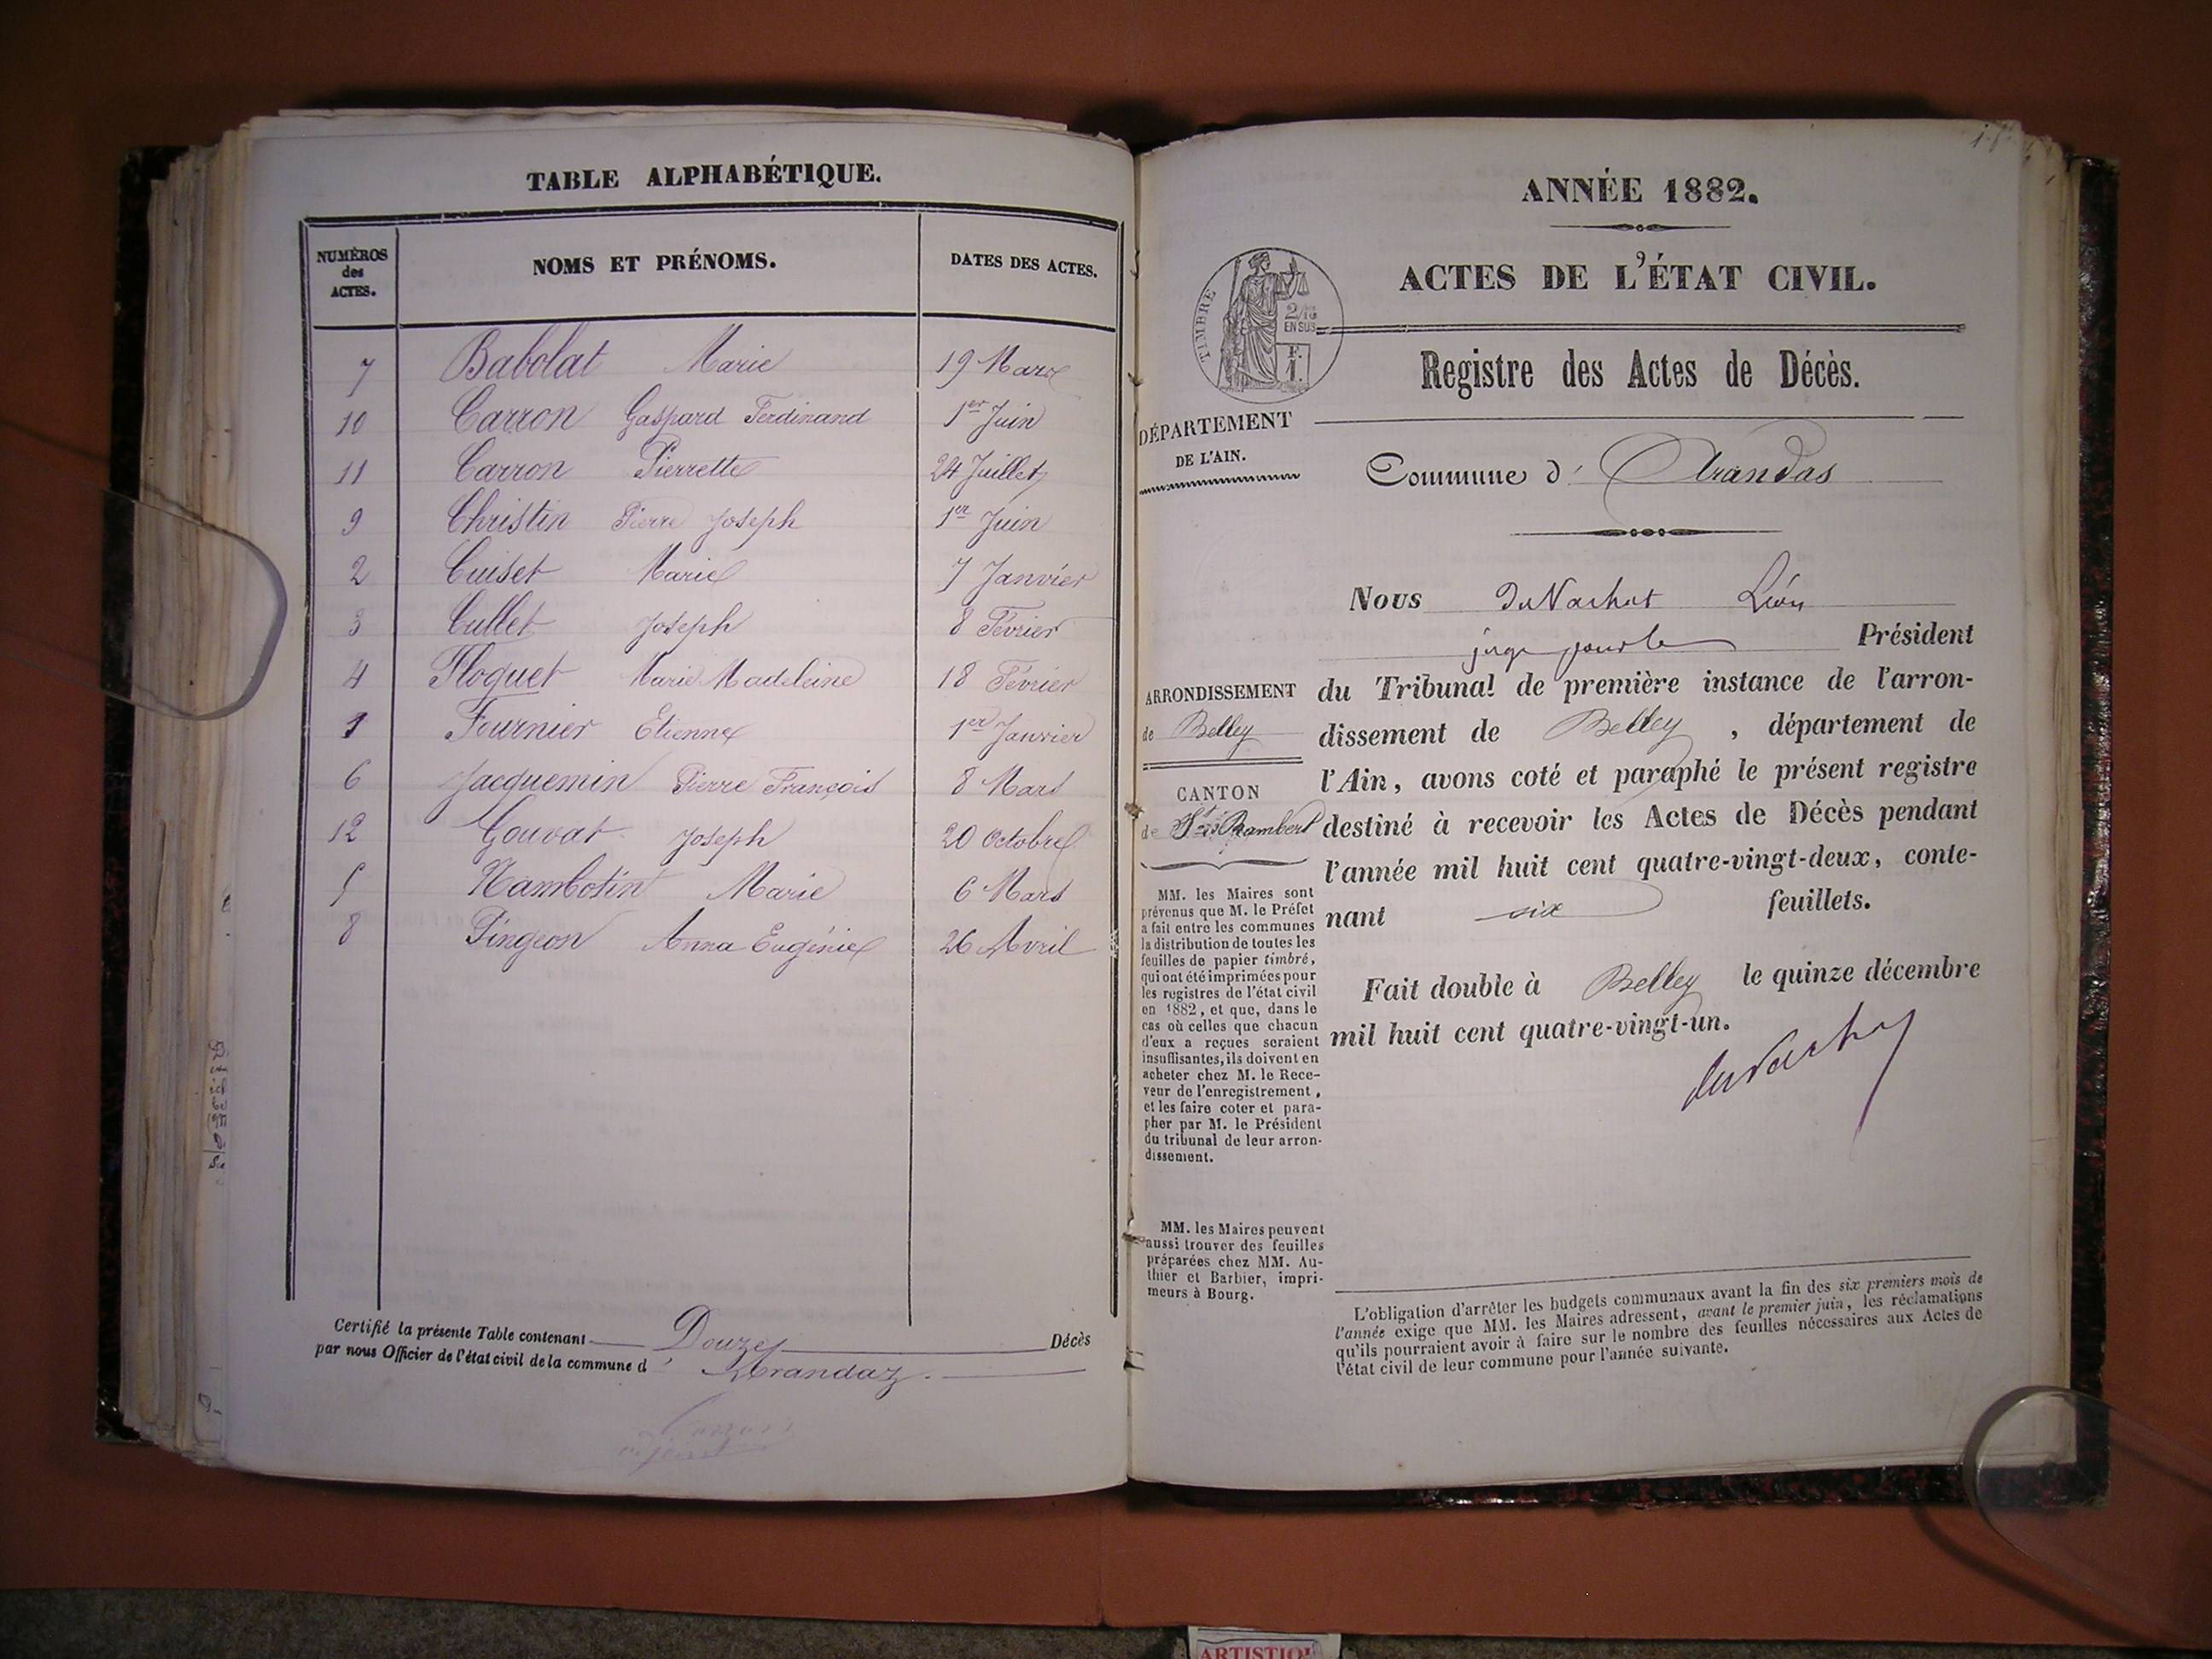 TABLE ALPHABÉTIQUE.
NUMÉROS des ACTES. NOMS ET PRÉNOMS. DATES DES ACTES.
7 Babolat Marie 19 Mars
10 Carron Gaspard Ferdinand 1er Juin
11 Carron Pierrette 24 Juillet
9 Christin Pierre Joseph 1er Juin
2 Cuiset Marie 7 Janvier
3 Cullet Joseph 8 Février
4 Floquet Marie Madeleine 18 Février
1 Fournier Etienne 1er Janvier
6 Jacquemin Pierre François 8 Mars
12 Gouvat Joseph 20 Octobre
5 Nambotin Marie 6 Mars
8 Pingeon Anna Eugénie 26 Avril
Certifié la présente Table contenant Douze Décès
par nous Officier de l'état civil de la commune d' Arandaz.
ANNÉE 1882.
ACTES DE L'ÉTAT CIVIL.
TIMBRE
2/10
EN SUS
F.
1.
Registre des Actes de Décès.
DÉPARTEMENT
DE L'AIN.
Commune d' Arandas
Nous Léon
juge pour le Président
du Tribunal de première instance de l'arron-
dissement de Belley, département de
l'Ain, avons coté et paraphé le présent registre
destiné à recevoir les Actes de Décès pendant
l'année mil huit cent quatre-vingt-deux, conte-
nant six feuillets.
Fait double à Belley le quinze décembre
mil huit cent quatre-vingt-un.
ARRONDISSEMENT
de Belley
CANTON
de St Rambert
MM. les Maires sont
prévenus que M. le Préfet
a fait entre les communes
la distribution de toutes les
feuilles de papier timbré,
qui ont été imprimées pour
les registres de l'état civil
en 1882, et que, dans le
cas où celles que chacun
d'eux a reçues seraient
insuffisantes, ils doivent en
acheter chez M. le Rece-
veur de l'enregistrement,
et les faire coter et para-
pher par M. le Président
du tribunal de leur arron-
dissement.
MM. les Maires peuvent
aussi trouver des feuilles
préparées chez MM. Au-
thier et Barbier, impri-
meurs à Bourg.
L'obligation d'arrêter les budgets communaux avant la fin des six premiers mois de
l'année exige que MM. les Maires adressent, avant le premier juin, les réclamations
qu'ils pourraient avoir à faire sur le nombre des feuilles nécessaires aux Actes de
l'état civil de leur commune pour l'année suivante.